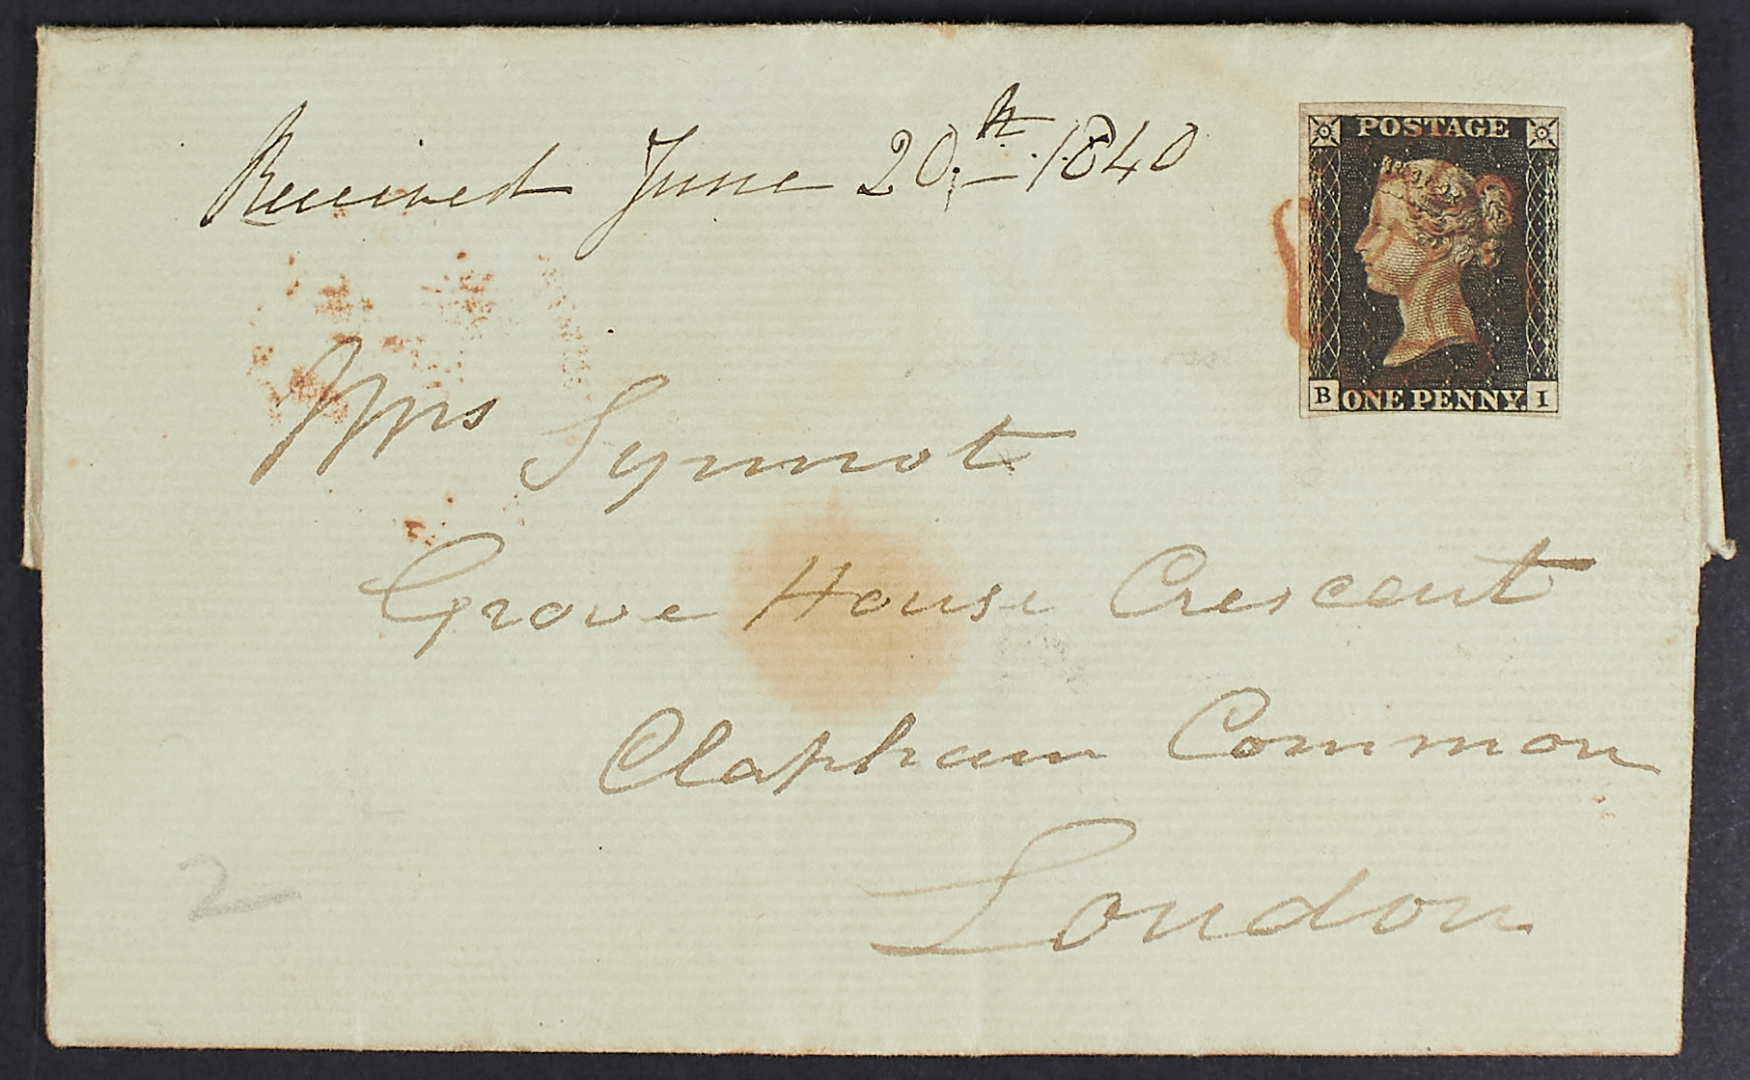 Received June 20th 1840
POSTAGE
B ONE PENNY. I
Mrs Synnot
Grove House Crescent
Clapham Common
London
2